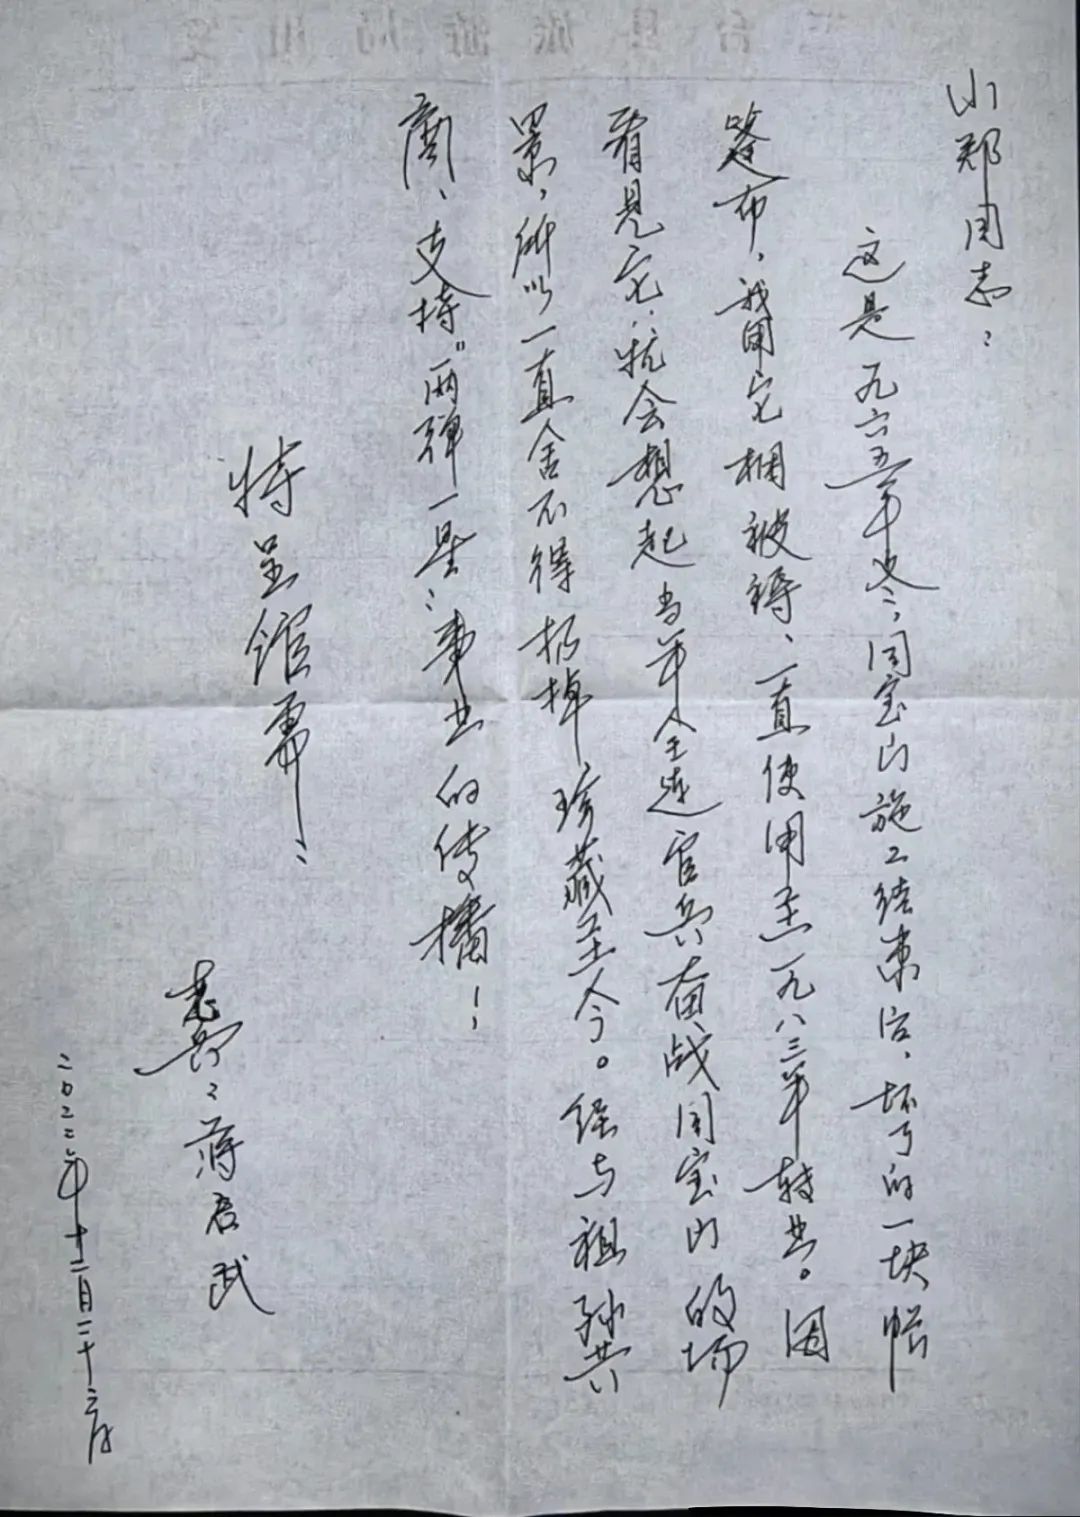 小郑同志：
这是一九六五年冬，国宝山施工结束后，坏了的一块帐
篷布，我用它捆被褥、一直使用至一九八三年转业。因
看见它，就会想起当年全连官兵奋战国宝山的场
景，所以一直舍不得扔掉，珍藏至今。经与祖孙共
商、支持“两弹一星”事业的传播！
特呈馆藏：
老兵：蒋君武
二〇二二年十二月二十六日